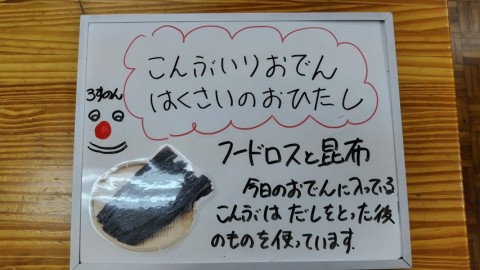 こんぶいりおでん
はくさいのおひたし
ろすのん
フードロスと昆布
今日のおでんに入っている
こんぶはだしをとった後
のものを使っています.